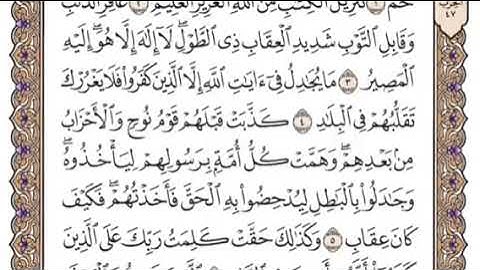 حمٓ ١ تَنزِيلُ ٱلْكِتَٰبِ مِنَ ٱللَّهِ ٱلْعَزِيزِ ٱلْعَلِيمِ ٢ غَافِرِ ٱلذَّنۢبِ
وَقَابِلِ ٱلتَّوْبِ شَدِيدِ ٱلْعِقَابِ ذِى ٱلطَّوْلِ ۖ لَآ إِلَٰهَ إِلَّا هُوَ ۖ إِلَيْهِ
ٱلْمَصِيرُ ٣ مَا يُجَٰدِلُ فِىٓ ءَايَٰتِ ٱللَّهِ إِلَّا ٱلَّذِينَ كَفَرُوا۟ فَلَا يَغْرُرْكَ
تَقَلُّبُهُمْ فِى ٱلْبِلَٰدِ ٤ كَذَّبَتْ قَبْلَهُمْ قَوْمُ نُوحٍ وَٱلْأَحْزَابُ
مِنۢ بَعْدِهِمْ ۖ وَهَمَّتْ كُلُّ أُمَّةٍۭ بِرَسُولِهِمْ لِيَأْخُذُوهُ ۖ
وَجَٰدَلُوا۟ بِٱلْبَٰطِلِ لِيُدْحِضُوا۟ بِهِ ٱلْحَقَّ فَأَخَذْتُهُمْ ۖ فَكَيْفَ
كَانَ عِقَابِ ٥ وَكَذَٰلِكَ حَقَّتْ كَلِمَتُ رَبِّكَ عَلَى ٱلَّذِينَ